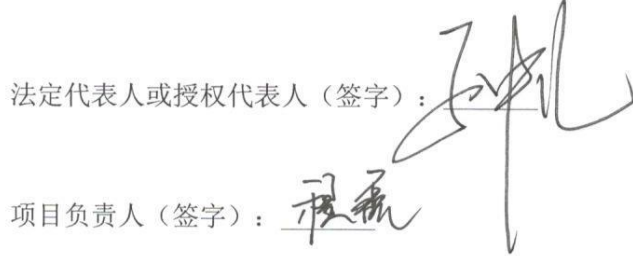 法定代表人或授权代表人（签字）：
项目负责人（签字）：